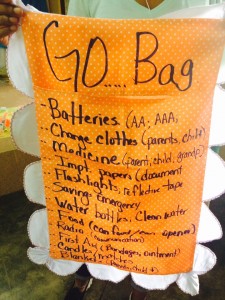 GO.... Bag
- Batteries (AA, AAA,
- Change clothes (parents, child)
- Medicine (parent, child, grandp)
- Impt. papers (document
- Flashlights, reflective tape
- Savings- Emergency
- Water bottles, Clean water
- Food (can opener)
- Radio (communication)
- First Aid (Bandages, ointment)
- Candles, matches
- Blankets